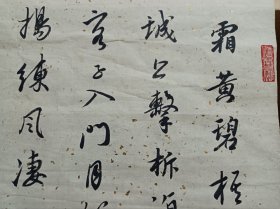 霜黄碧梧
城上擊柝
客子入門月
搗練風凄